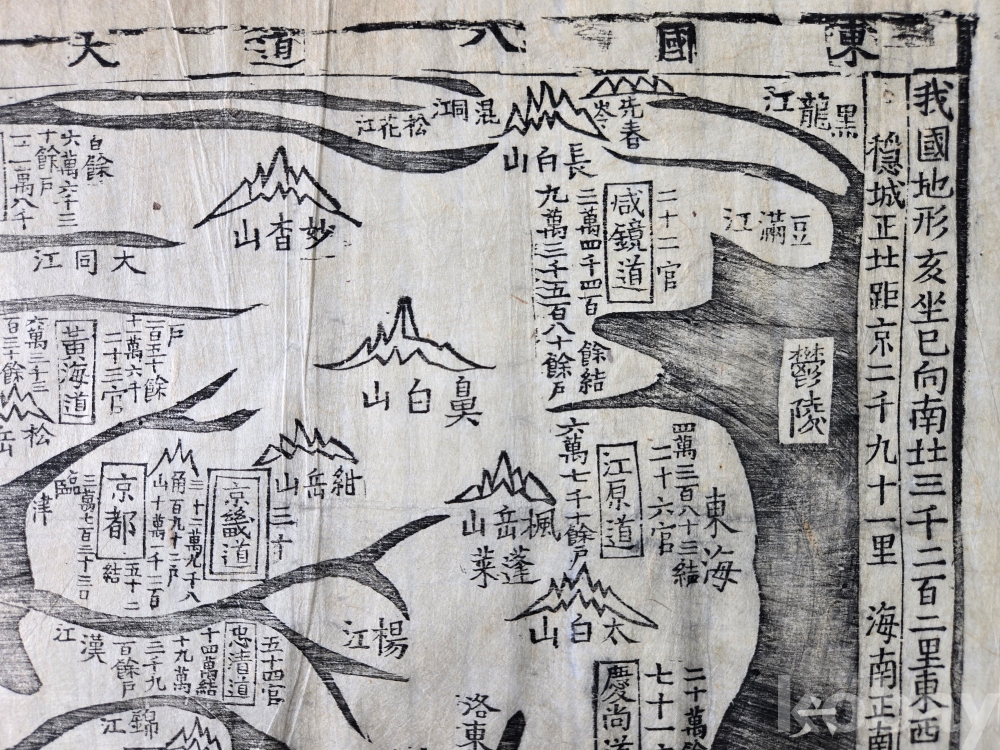 東國八道大
我國地形亥坐巳向南北三千二百二里東西
穩城正北距京二千九十一里 海南正南
黑龍江
先春岺
長白山
混同江
松花江
豆滿江
二十二官
咸鏡道
三萬四千四百餘結
九萬三千五百八十餘戶
鬱陵
東海
妙杳山
大同江
白餘
六萬六千三
十餘戶
一二萬八千
鼻白山
四萬三百八十三結
二十六官
江原道
六萬七千一餘戶
楓岳山
蓬萊
太白山
戶
二百五十餘
十萬六千
二十三官
黃海道
六萬三千三
百三十餘
松岳
紺岳山
三十
京畿道
京都
臨津
三萬七百三十二口
楊江
漢江
五十四官
忠淸道
十四萬結
十九萬
三千九
百餘戶
錦江
洛東
二十萬餘
七十一
慶尙道